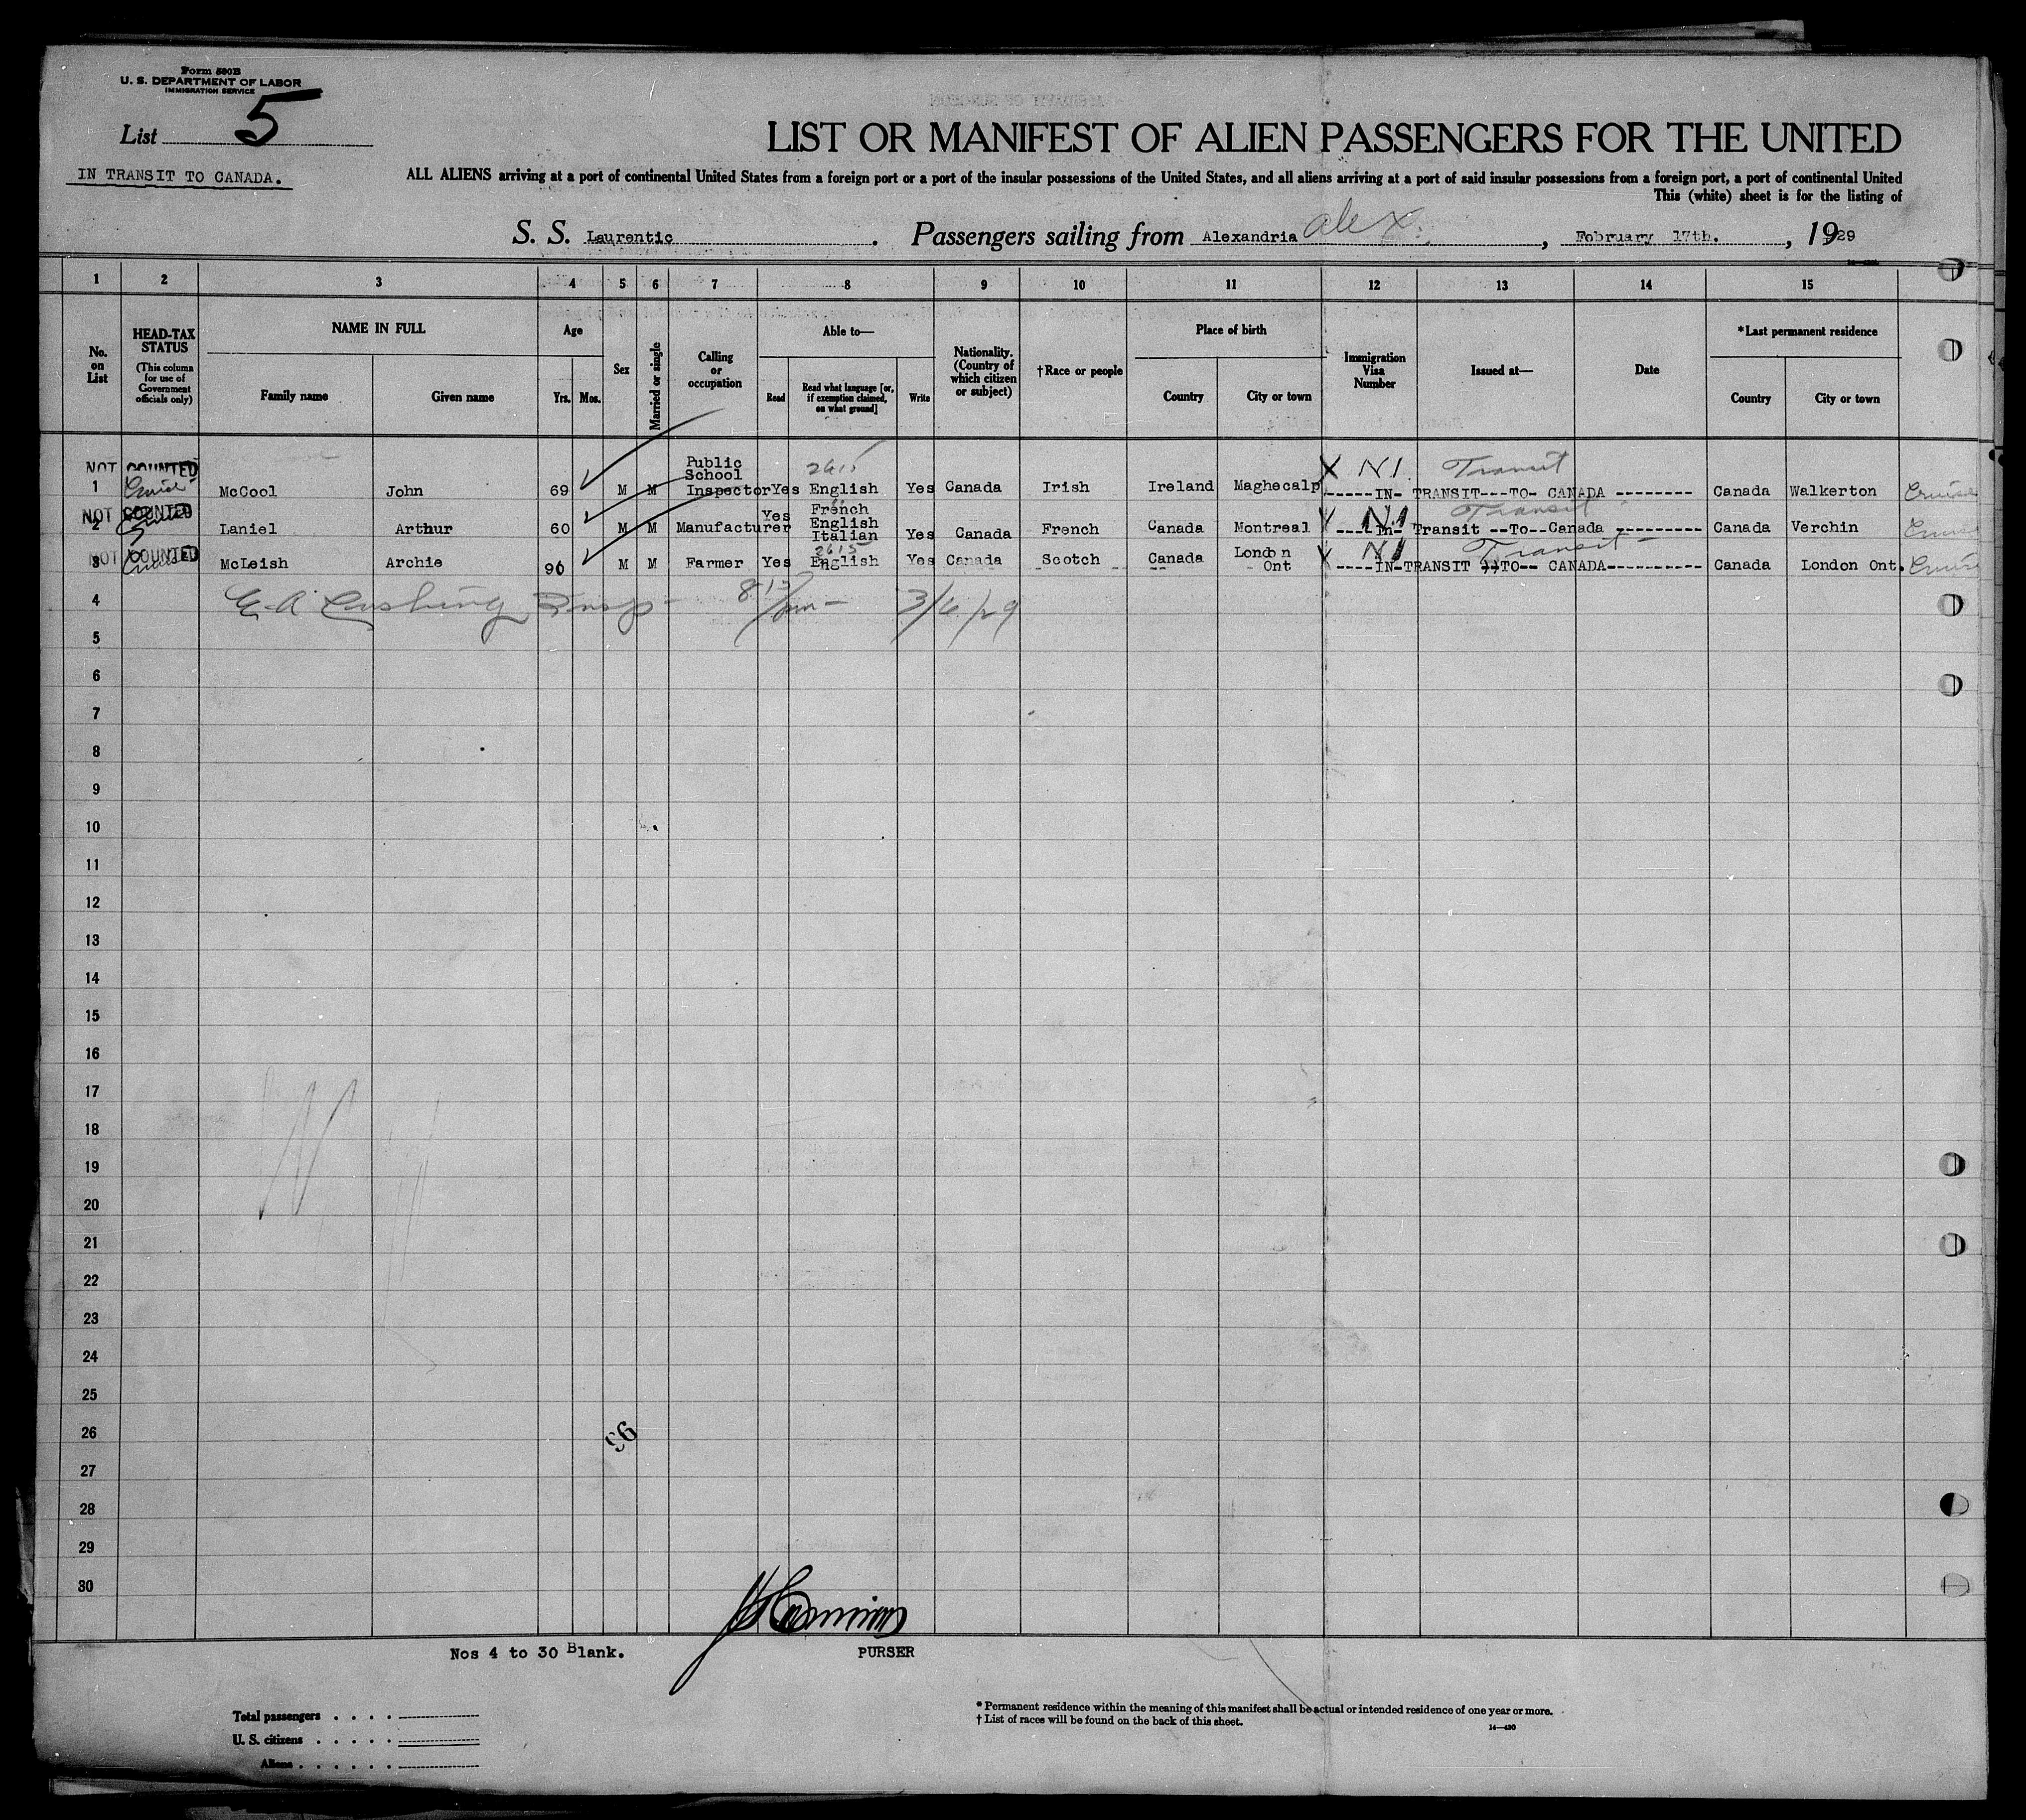 Form 500B
U. S. DEPARTMENT OF LABOR
IMMIGRATION SERVICE
List 5
IN TRANSIT TO CANADA.
LIST OR MANIFEST OF ALIEN PASSENGERS FOR THE UNITED
ALL ALIENS arriving at a port of continental United States from a foreign port or a port of the insular possessions of the United States, and all aliens arriving at a port of said insular possessions from a foreign port, a port of continental United
This (white) sheet is for the listing of
S. S. Laurentic. Passengers sailing from Alexandria alex., February 17th., 1929
1 2 3 4 5 6 7 8 9 10 11 12 13 14 15
No. on List
HEAD-TAX STATUS (This column for use of Government officials only)
NAME IN FULL
Family name Given name
Age
Yrs. Mos.
Sex
Married or single
Calling or occupation
Able to—
Read
Read what language [or, if exemption claimed, on what ground]
Write
Nationality. (Country of which citizen or subject)
†Race or people
Place of birth
Country City or town
Immigration Visa Number
Issued at—
Date
*Last permanent residence
Country City or town
NOT COUNTED Public School 2615 X NI Transit
1 Cruise McCool John 69 M M Inspector Yes English Yes Canada Irish Ireland Maghecalp -----IN- TRANSIT---TO- CANADA -------- Canada Walkerton Cruise
NOT COUNTED Yes French NI Transit
2 Laniel Arthur 60 M M Manufacturer English Italian Yes Canada French Canada Montreal ----In- Transit --To--Canada --------- Canada Verchin Cruise
NOT COUNTED 2615 NI Transit
3 Cruise McLeish Archie 90 M M Farmer Yes English Yes Canada Scotch Canada London Ont -----IN-TRANSIT --TO-- CANADA---------- Canada London Ont. Cruise
4 E A Cushing Insp 3/6/29
5
6
7
8
9
10
11
12
13
14
15
16
17
18
19
20
21
22
23
24
25
26
96
27
28
29
30
Nos 4 to 30 Blank. PURSER
Total passengers
U. S. citizens
Aliens
* Permanent residence within the meaning of this manifest shall be actual or intended residence of one year or more.
† List of races will be found on the back of this sheet.
14—430